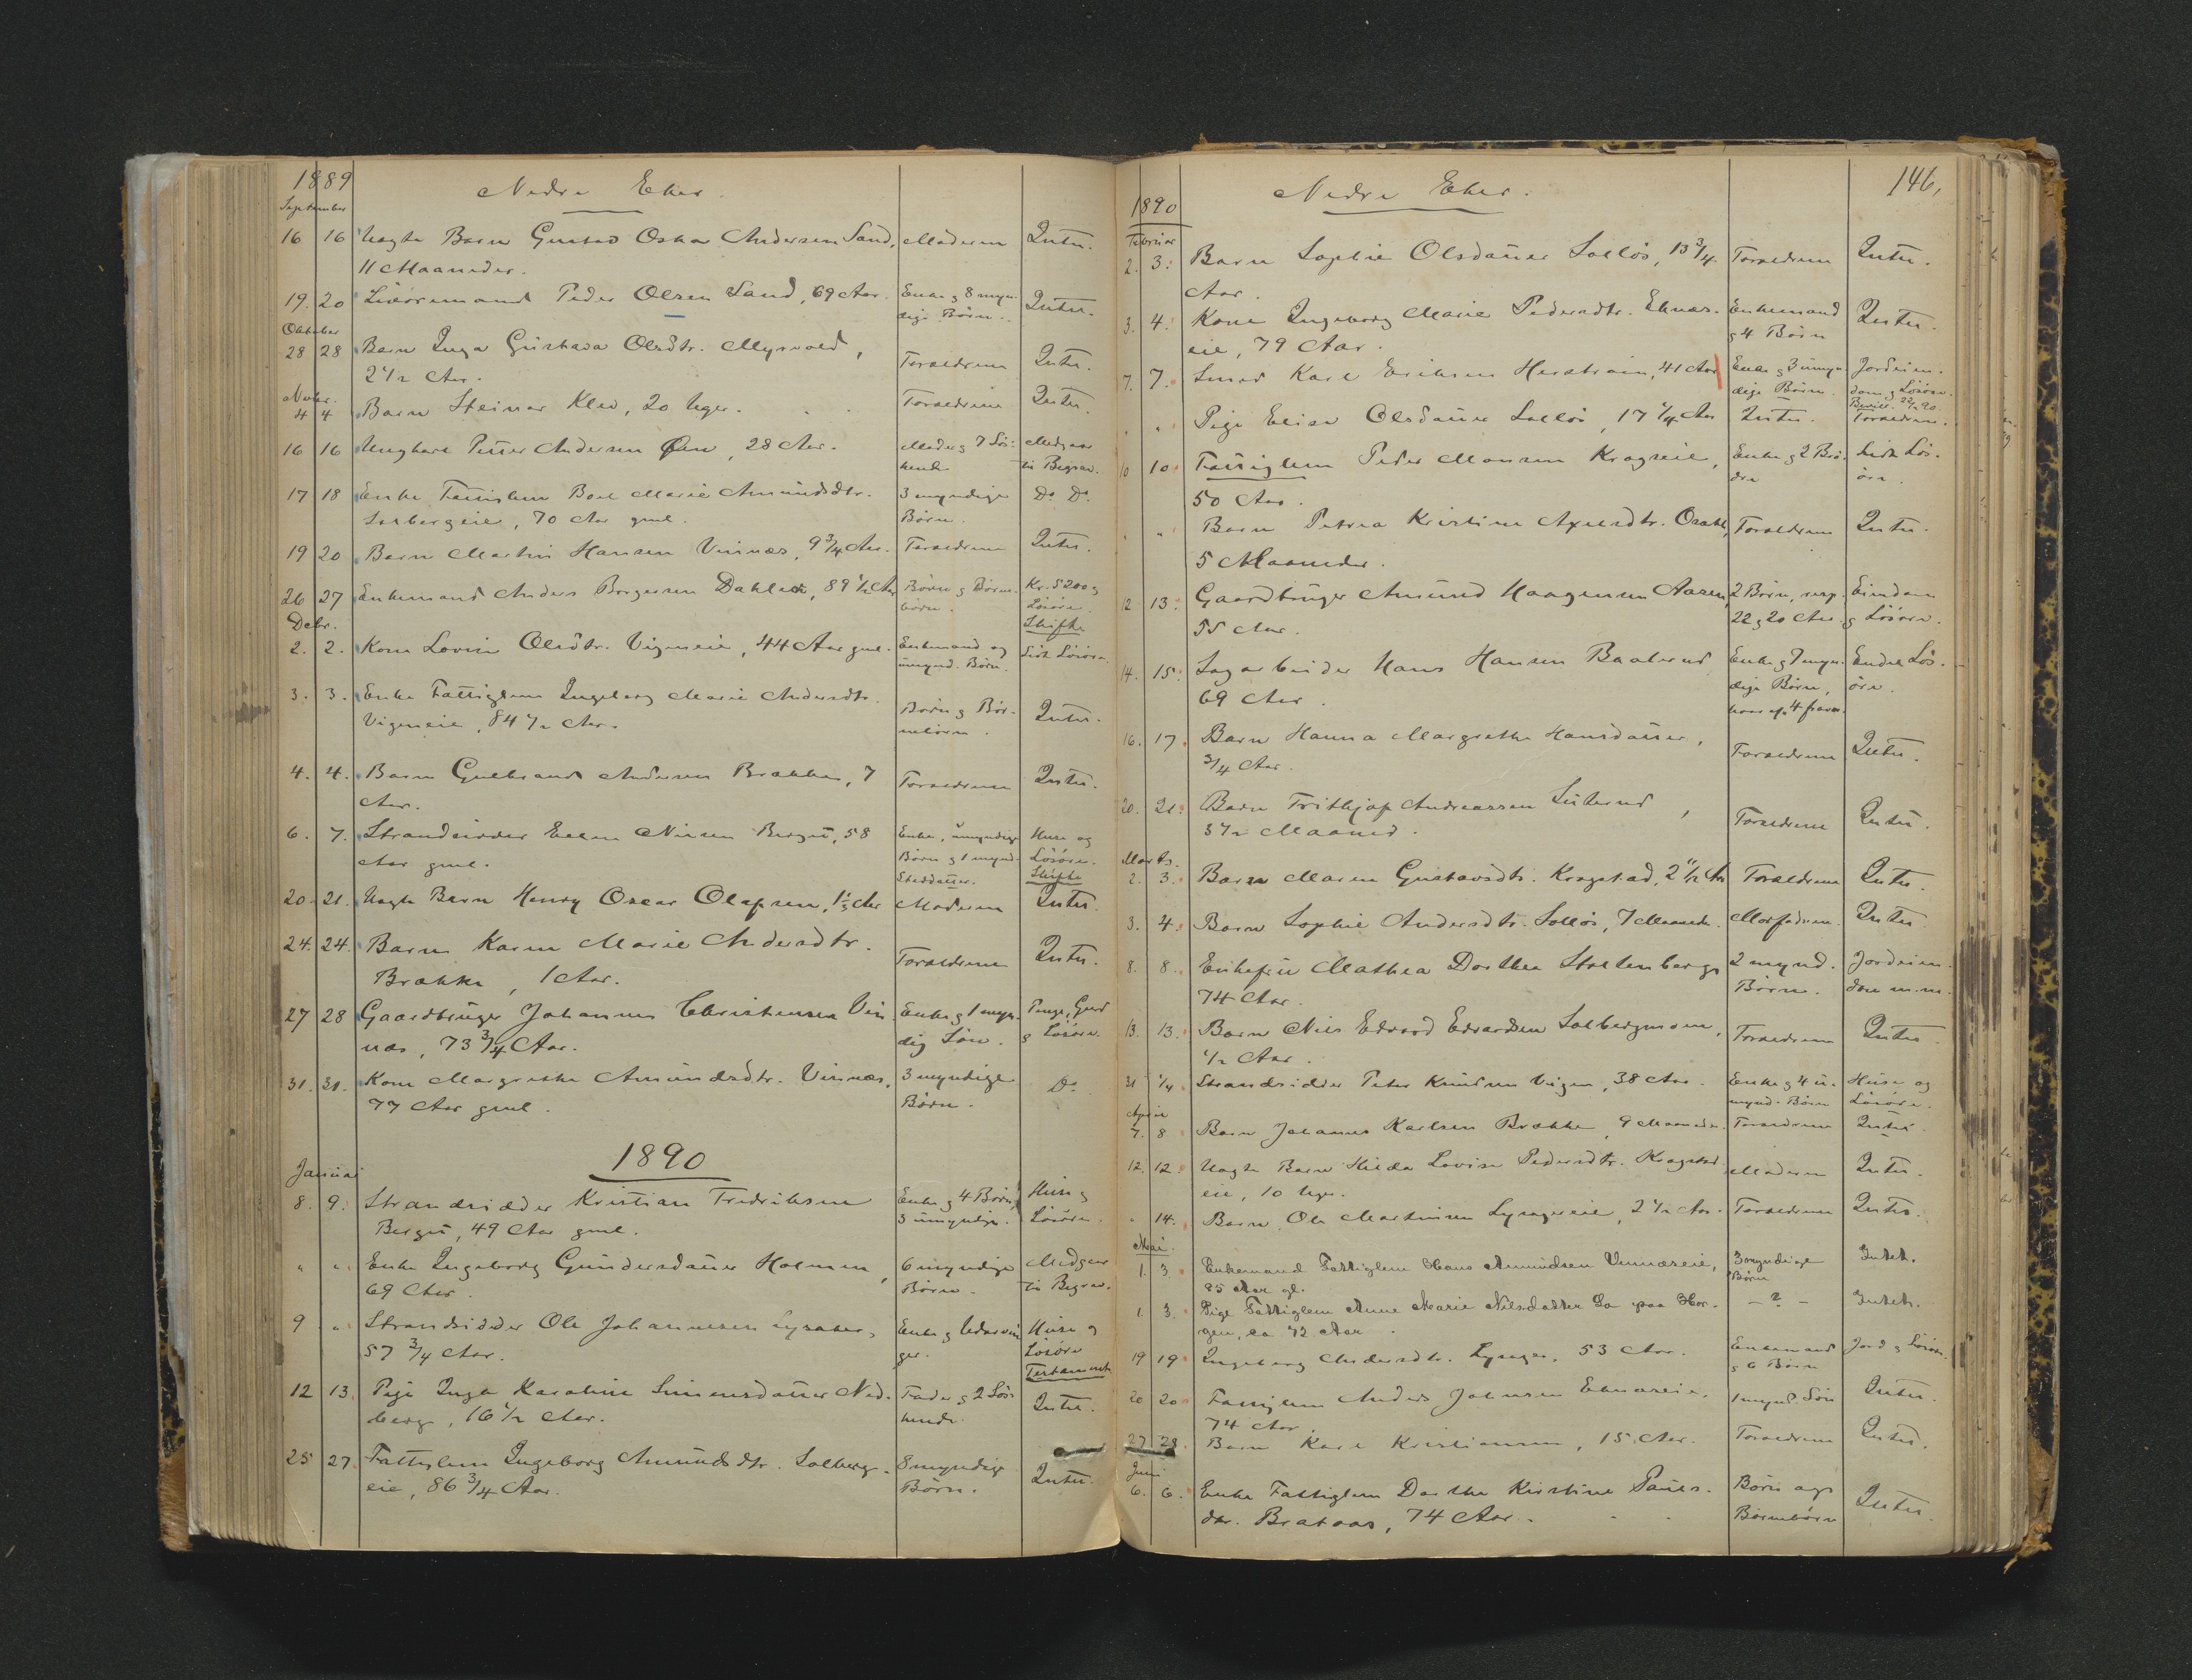 1889
Nedre Eker.
September
16 16 Uægte Barn Gustav Oskar Andersen Sand, Moderen Intet.
11 Maaneder.
19. 20 Peder Olsen Sand, 69 Aar. Enke og 8 myn- Intet.
dige Børn.
Oktober
28 28 Barn Inga Gustava Olsdtr. Myrvold, Forældrene Intet.
2 1/2 Aar.
Novbr.
4 4 Barn Steinar Klev, 20 Uger. Forældrene Intet.
16 16 Ungkarl Petter Andersen Øen, 28 Aar. Moder og 7 Sø- Medgaar
kende til Begrav.
17 18 Enke Fattiglem Boel Marie Amundsdtr. 3 myndige Do Do
Solbergeie, 70 Aar gml. Børn.
19 20 Barn Martin Hansen Vinnæs, 9 3/4 Aar. Forældrene Intet.
26 27 Enkemand Anders Borgersen Dahler, 89 1/2 Aar Børn og Børne- Kr. 5200 og
børn. Løsøre.
Skifte
Debr.
2. 2. Kone Lovise Olsdtr. Vigeneie, 44 Aar gml. Enkemand og Lidt Løsøre.
umynd. Børn.
3. 3. Enke Fattiglem Ingeborg Marie Andersdtr.
Vigeneie, 84 1/2 Aar. Børn og Bør- Intet.
nebørn.
4. 4. Barn Gulbrand Andersen Brække, 7 Forældrene Intet.
Aar.
6. 7. Strandsidder Ellen Nilsen Berget, 58 Enke, umyndige Huse og
Aar gml. Børn og 1 mynd. Løsøre.
Steddatter. Skifte
20. 21. Uægte Barn Henry Oscar Olafsen, 1 1/3 Aar Moderen Intet.
24. 24. Barn Karen Marie Andersdtr. Forældrene Intet.
Brække, 1 Aar.
27 28 Gaardbruger Johannes Christensen Vin- Enke og 1 myn- Penge, Gaard
næs, 73 3/4 Aar. dig Søn. og Løsøre.
31. 31. Kone Margrethe Amundsdtr. Vinnæs, 3 myndige Do
77 Aar gml. Børn.
1890
Januar
8. 9. Strandsidder Kristian Fredriksen Enke og 4 Børn, Huse og
Berget, 49 Aar gml. 3 umyndige. Løsøre.
" " Enke Ingeborg Gundersdatter Holmen, 6 myndige Medgaar
69 Aar. Børn. til Begrav.
9 " Strandsidder Ole Johannesen Lysaker, Enke og Udarvin- Huse og
57 3/4 Aar. ger. Løsøre
Testament
12 13. Pige Inga Karoline Simensdatter Ned- Fader og 2 Søs- Intet.
berg, 16 1/2 Aar. kende.
25 27. Fattiglem Ingeborg Amundsdtr. Solberg- 8 myndige Intet.
eie, 86 3/4 Aar. Børn.
146.
1890
Nedre Eker.
Februar
2. 3. Barn Sophie Olsdatter Solløs, 13 3/4 Forældrene Intet.
Aar.
3. 4. Kone Ingeborg Marie Pedersdtr. Eknæs- Enkemand Intet.
eie, 79 Aar. og 4 Børn
7. 7. Smed Karl Eriksen Herstrøm, 41 Aar Enke og 3 umyn- Jordeien-
dige Børn. dom og Løsøre.
Bevill. 22/2 90.
" " Pige Elise Olsdatter Solløs, 17 1/4 Aar Intet. Forældrene.
10 10. Fattiglem Peder Monsen Kragseie, Enke og 2 Brø- Lidt Løs-
50 Aar. dre øre.
" " Barn Petrea Kristine Axelsdtr. Forældrene Intet.
5 Maaneder.
12 13. Gaardbruger Amund Haagensen Aasen, 2 Børn, resp. Eiendom
55 Aar. 22 og 20 Aar. og Løsøre.
14. 15. Sagarbeider Hans Hansen Baalerud Enke og 7 myn- Endel Løs-
69 Aar. dige Børn, øre.
hvoraf 4 fravær.
16. 17. Barn Hanna Margrethe Hansdatter, Forældrene Intet.
3/4 Aar.
20. 21. Barn Frithjof Andreassen , Forældrene Intet.
3 1/2 Maaned.
Marts.
2. 3. Barn Maren Gustavsdtr. Krogstad, 2 1/2 Aar Forældrene Intet.
3. 4. Barn Sophie Andersdtr. Solløs, 7 Maaneder. Morfaderen. Intet
8. 8. Enkefru Mathea Dorthea Stoltenberg, 2 mynd. Jordeien-
74 Aar. Børn. dom m.m.
13. 13. Barn Nils Edvard Edvardsen Solbergmoen, Forældrene Intet.
1/2 Aar.
31 1/4 Strandsidder Peter Knudsen Vigen, 38 Aar. Enke og 4 u- Huse og
mynd. Børn Løsøre.
April
7. 8 Barn Johannes Karlsen Brække, 9 Maaneder. Forældrene Intet.
12. 12. Uægte Barn Hilda Lovise Pedersdtr. Krogstad- Moderen Intet.
eie, 10 Uger.
" 14. Barn Ole Martinsen Lyngeneie, 2 1/2 Aar. Forældrene Intet.
Mai.
1. 3. Enkemand Fattiglem Hans Amundsen Vinnæseie, 3 myndige Intet.
85 Aar gl. Børn
1. 3. Pige Fattiglem Anne Marie Nilsdatter paa Hor- - ? - Intet.
gen, ca 72 Aar.
19 19. Ingeborg Andersdtr. Lynger, 53 Aar. Enkemand Jord og Løsøre.
og 6 Børn
20 20. Fattiglem Anders Johnsen Eknæseie, 1 mynd. Søn Intet.
74 Aar.
27 28. Barn Karl Kristiansen, 15 Aar. Forældrene Intet.
Juni
6. 6. Enke Fattiglem Dorthe Kristine Pauls- Børn og Intet.
dtr. Brataas, 74 Aar. Børnebørn